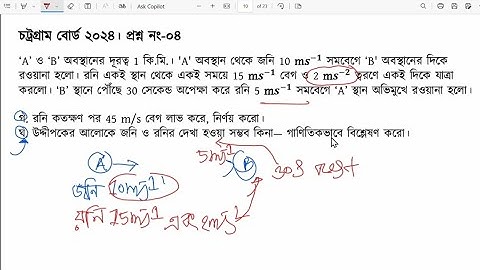 Ask Copilot
10 of 23
চট্টগ্রাম বোর্ড ২০২৪। প্রশ্ন নং-০৪
‘A’ ও ‘B’ অবস্থানের দূরত্ব 1 কি.মি.। ‘A’ অবস্থান থেকে জনি 10 ms⁻¹ সমবেগে ‘B’ অবস্থানের দিকে
রওয়ানা হলো। রনি একই স্থান থেকে একই সময়ে 15 ms⁻¹ বেগ ও 2 ms⁻² ত্বরণে একই দিকে যাত্রা
করলো। ‘B’ স্থানে পৌঁছে 30 সেকেন্ড অপেক্ষা করে রনি 5 ms⁻¹ সমবেগে ‘A’ স্থান অভিমুখে রওয়ানা হলো।
গ. রনি কতক্ষণ পর 45 m/s বেগ লাভ করে, নির্ণয় করো।
ঘ. উদ্দীপকের আলোকে জনি ও রনির দেখা হওয়া সম্ভব কিনা— গাণিতিকভাবে বিশ্লেষণ করো।
A 5ms⁻¹ B
জনি 10ms⁻¹
রনি 15ms⁻¹ এবং 2ms⁻²